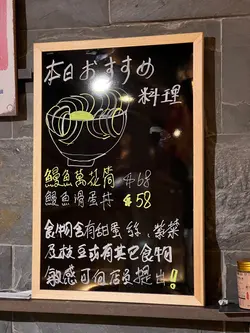 本日おすすめ
料理
鰻魚萬花筒 $68
鰻魚滑蛋丼 $58
食物含有甜蛋絲、紫菜
及枝豆或有其它食物
敏感可向店員提出!